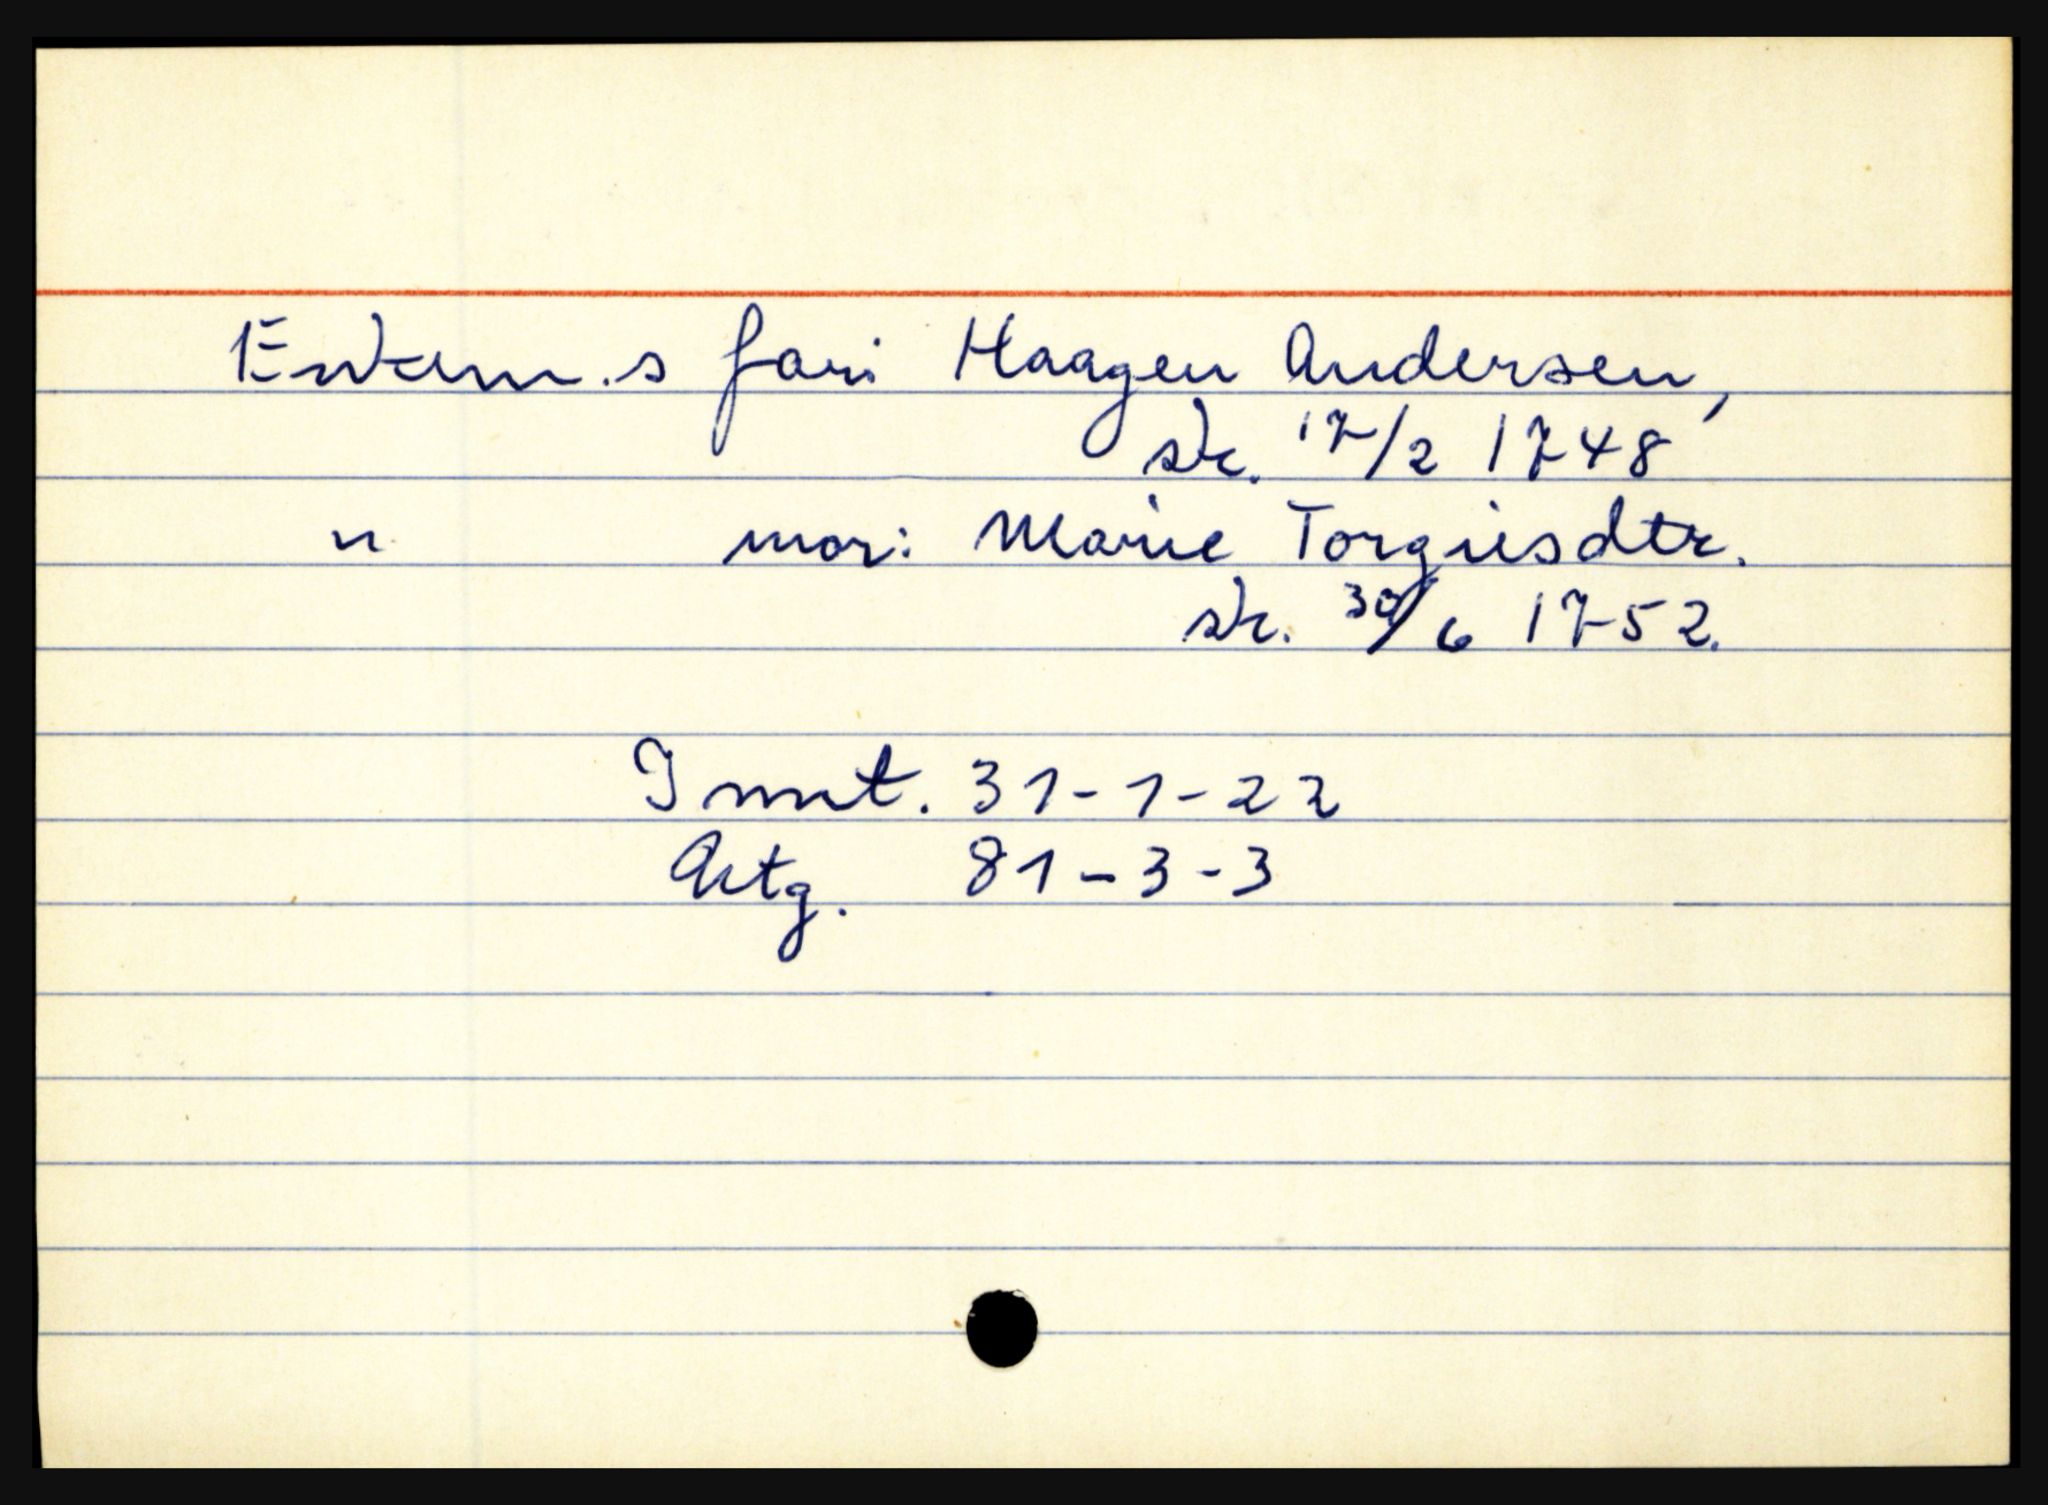 Enkem.s far: Haagen Andersen,
sk. 17/2 1748
" mor: Marie Torgiesdtr.
sk. 30/6 1752.
Innt. 31-1-22
Avtg. 81-3-3